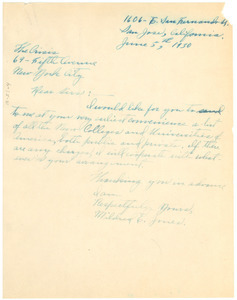 1606-E. San Fernando St.
San José, California.
June 5th 1930
The Crisis
69-Fifth Avenue
New York City
Dear Sirs:-
I would like for you to send
to me at your very earliest convenience a list
of all the Colleges and Universities of
America, both public and private. If there
are any charges I will
Thanking you in advance
I am
Respectfully Yours,
Mildred L. Jones.